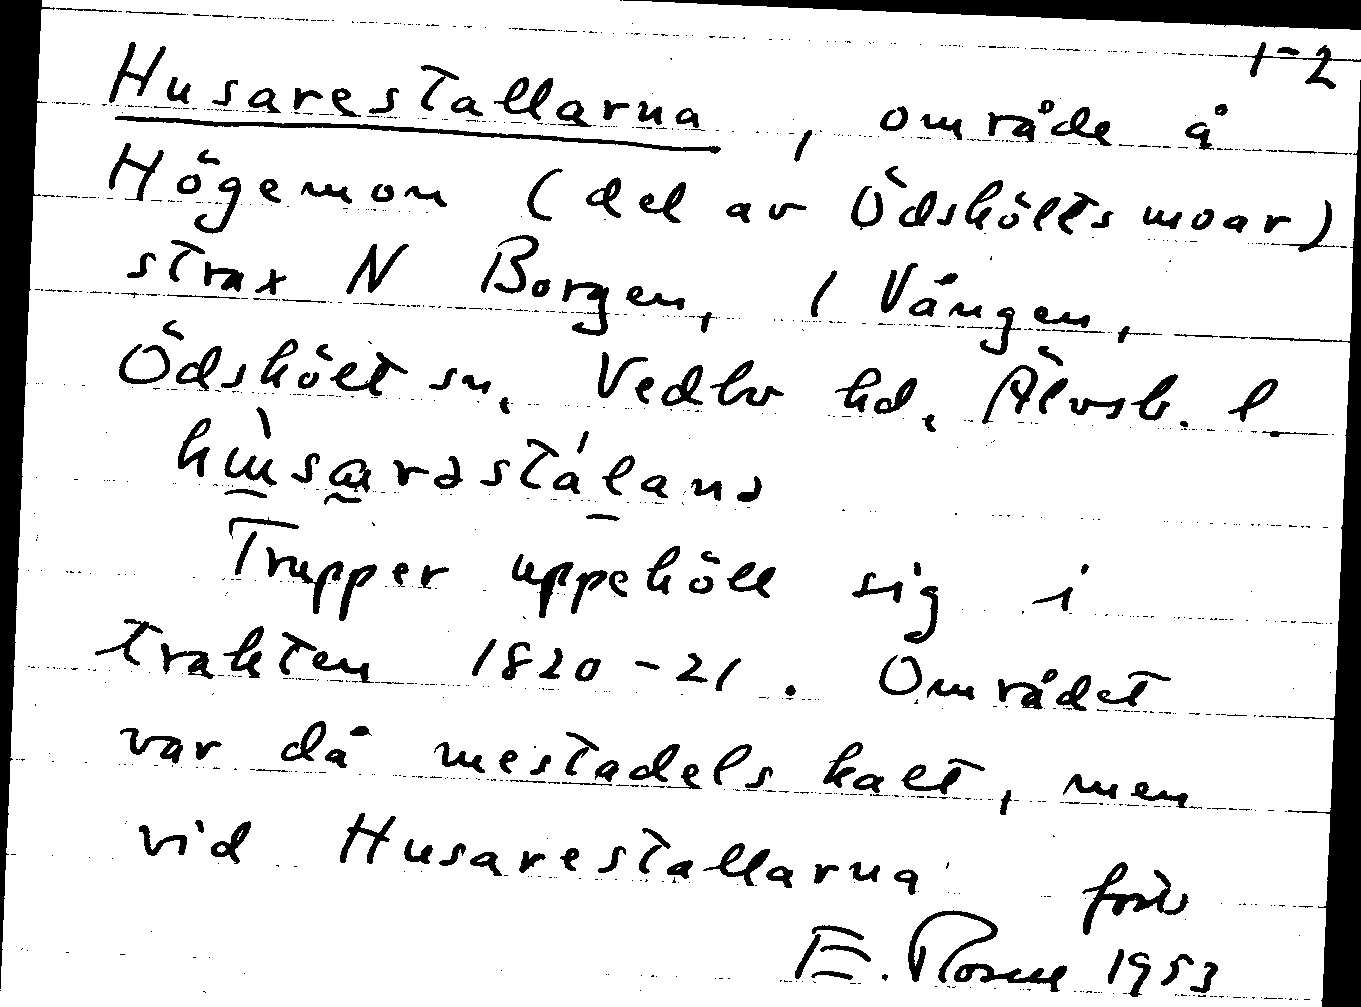 1-2
Husarestallarna, område å
Högemon (del av Ödshölts moar)
strax N Borgen, 1 Vången,
Ödshölt sn, Vedbo hd, Älvsb. l.
hùsarəstálanə
Trupper uppehöll sig i
trakten 1820-21. Området
var då mestadels kalt, men
vid Husarestallarna forts
E. 1953